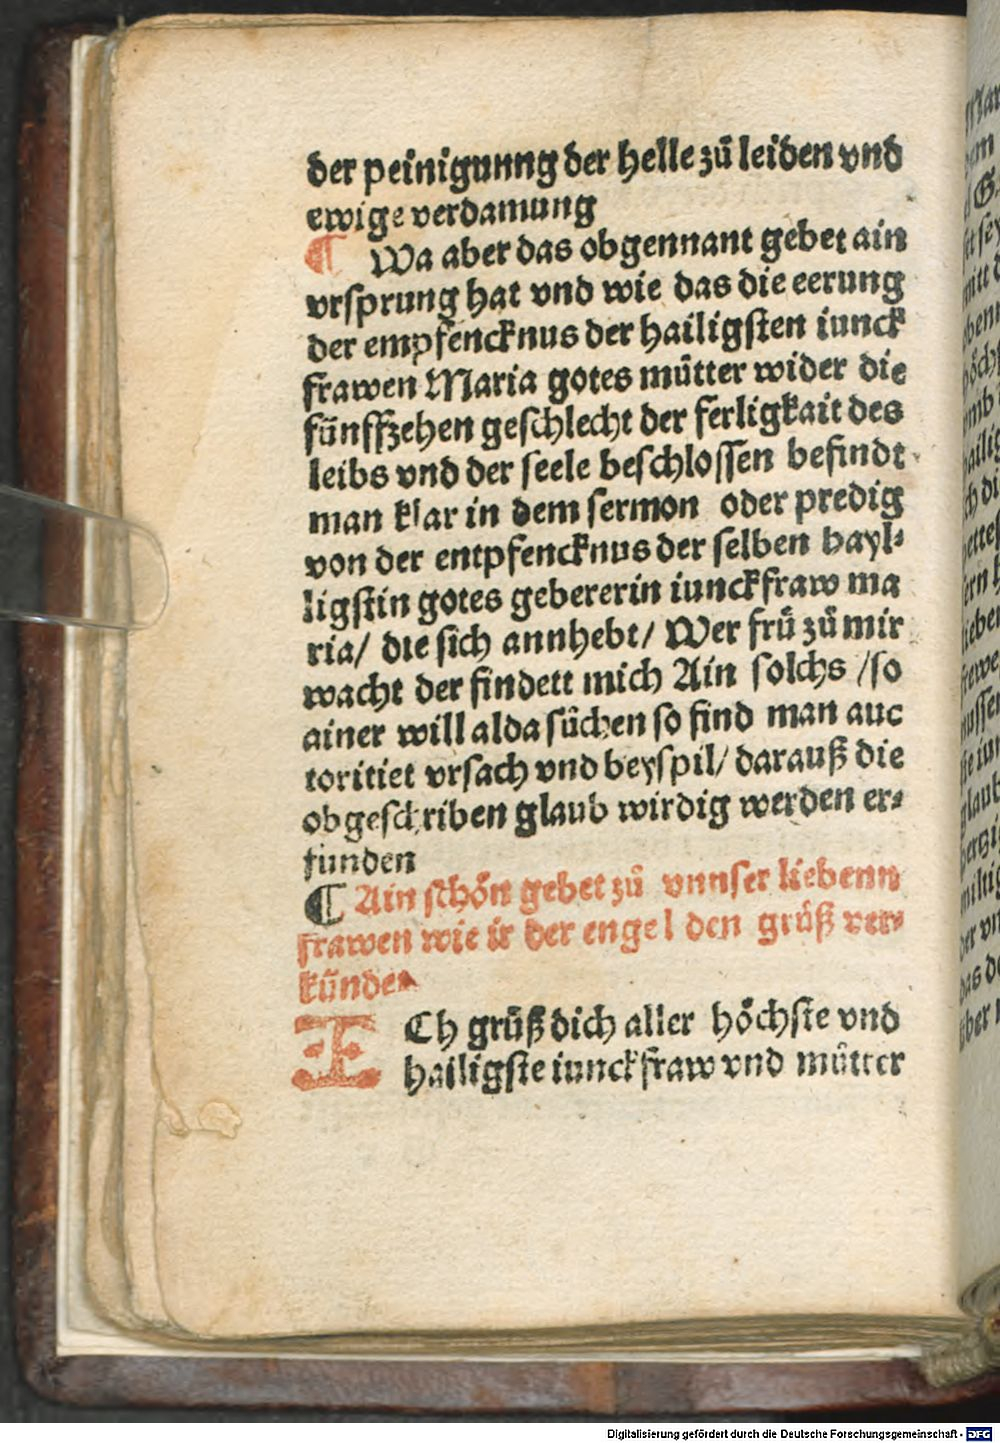 der peinigunng der helle zů leiden vnd
ewige verdamung
¶ Wa aber das obgennant gebet ain
vrsprung hat vnd wie das die eerung
der empfencknus der hailigsten iunck
frawen Maria gotes můtter wider die
fünffzehen geschlecht der ferligkait des
leibs vnd der seele beschlossen befindt
man klar in dem sermon oder predig
von der entpfencknus der selben hayl⸗
ligstin gotes gebererin iunckfraw ma
ria/ die sich annhebt/ Wer frů zů mir
wacht der findett mich Ain solchs /so
ainer will alda sůchen so find man auc
toritiet vrsach vnd beyspil/ darauß die
obgeschriben glaub wirdig werden er⸗
funden
¶ Ain schön gebet zů vnnser liebenn
frawen wie ir der engel den grůß ver⸗
künden
ICh grůß dich aller höchste vnd
hailigste iunckfraw vnd můtter
Digitalisierung gefördert durch die Deutsche Forschungsgemeinschaft - DFG